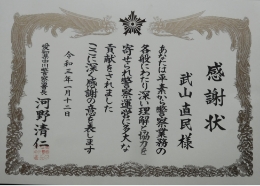 感謝状
武山直民様
あなたは平素から警察業務の
各般にわたり深い理解と協力を
寄せられ警察運営に多大な
貢献をされました
ここに深く感謝の意を表します
令和三年一月十二日
愛知県中川警察署長
河野清仁